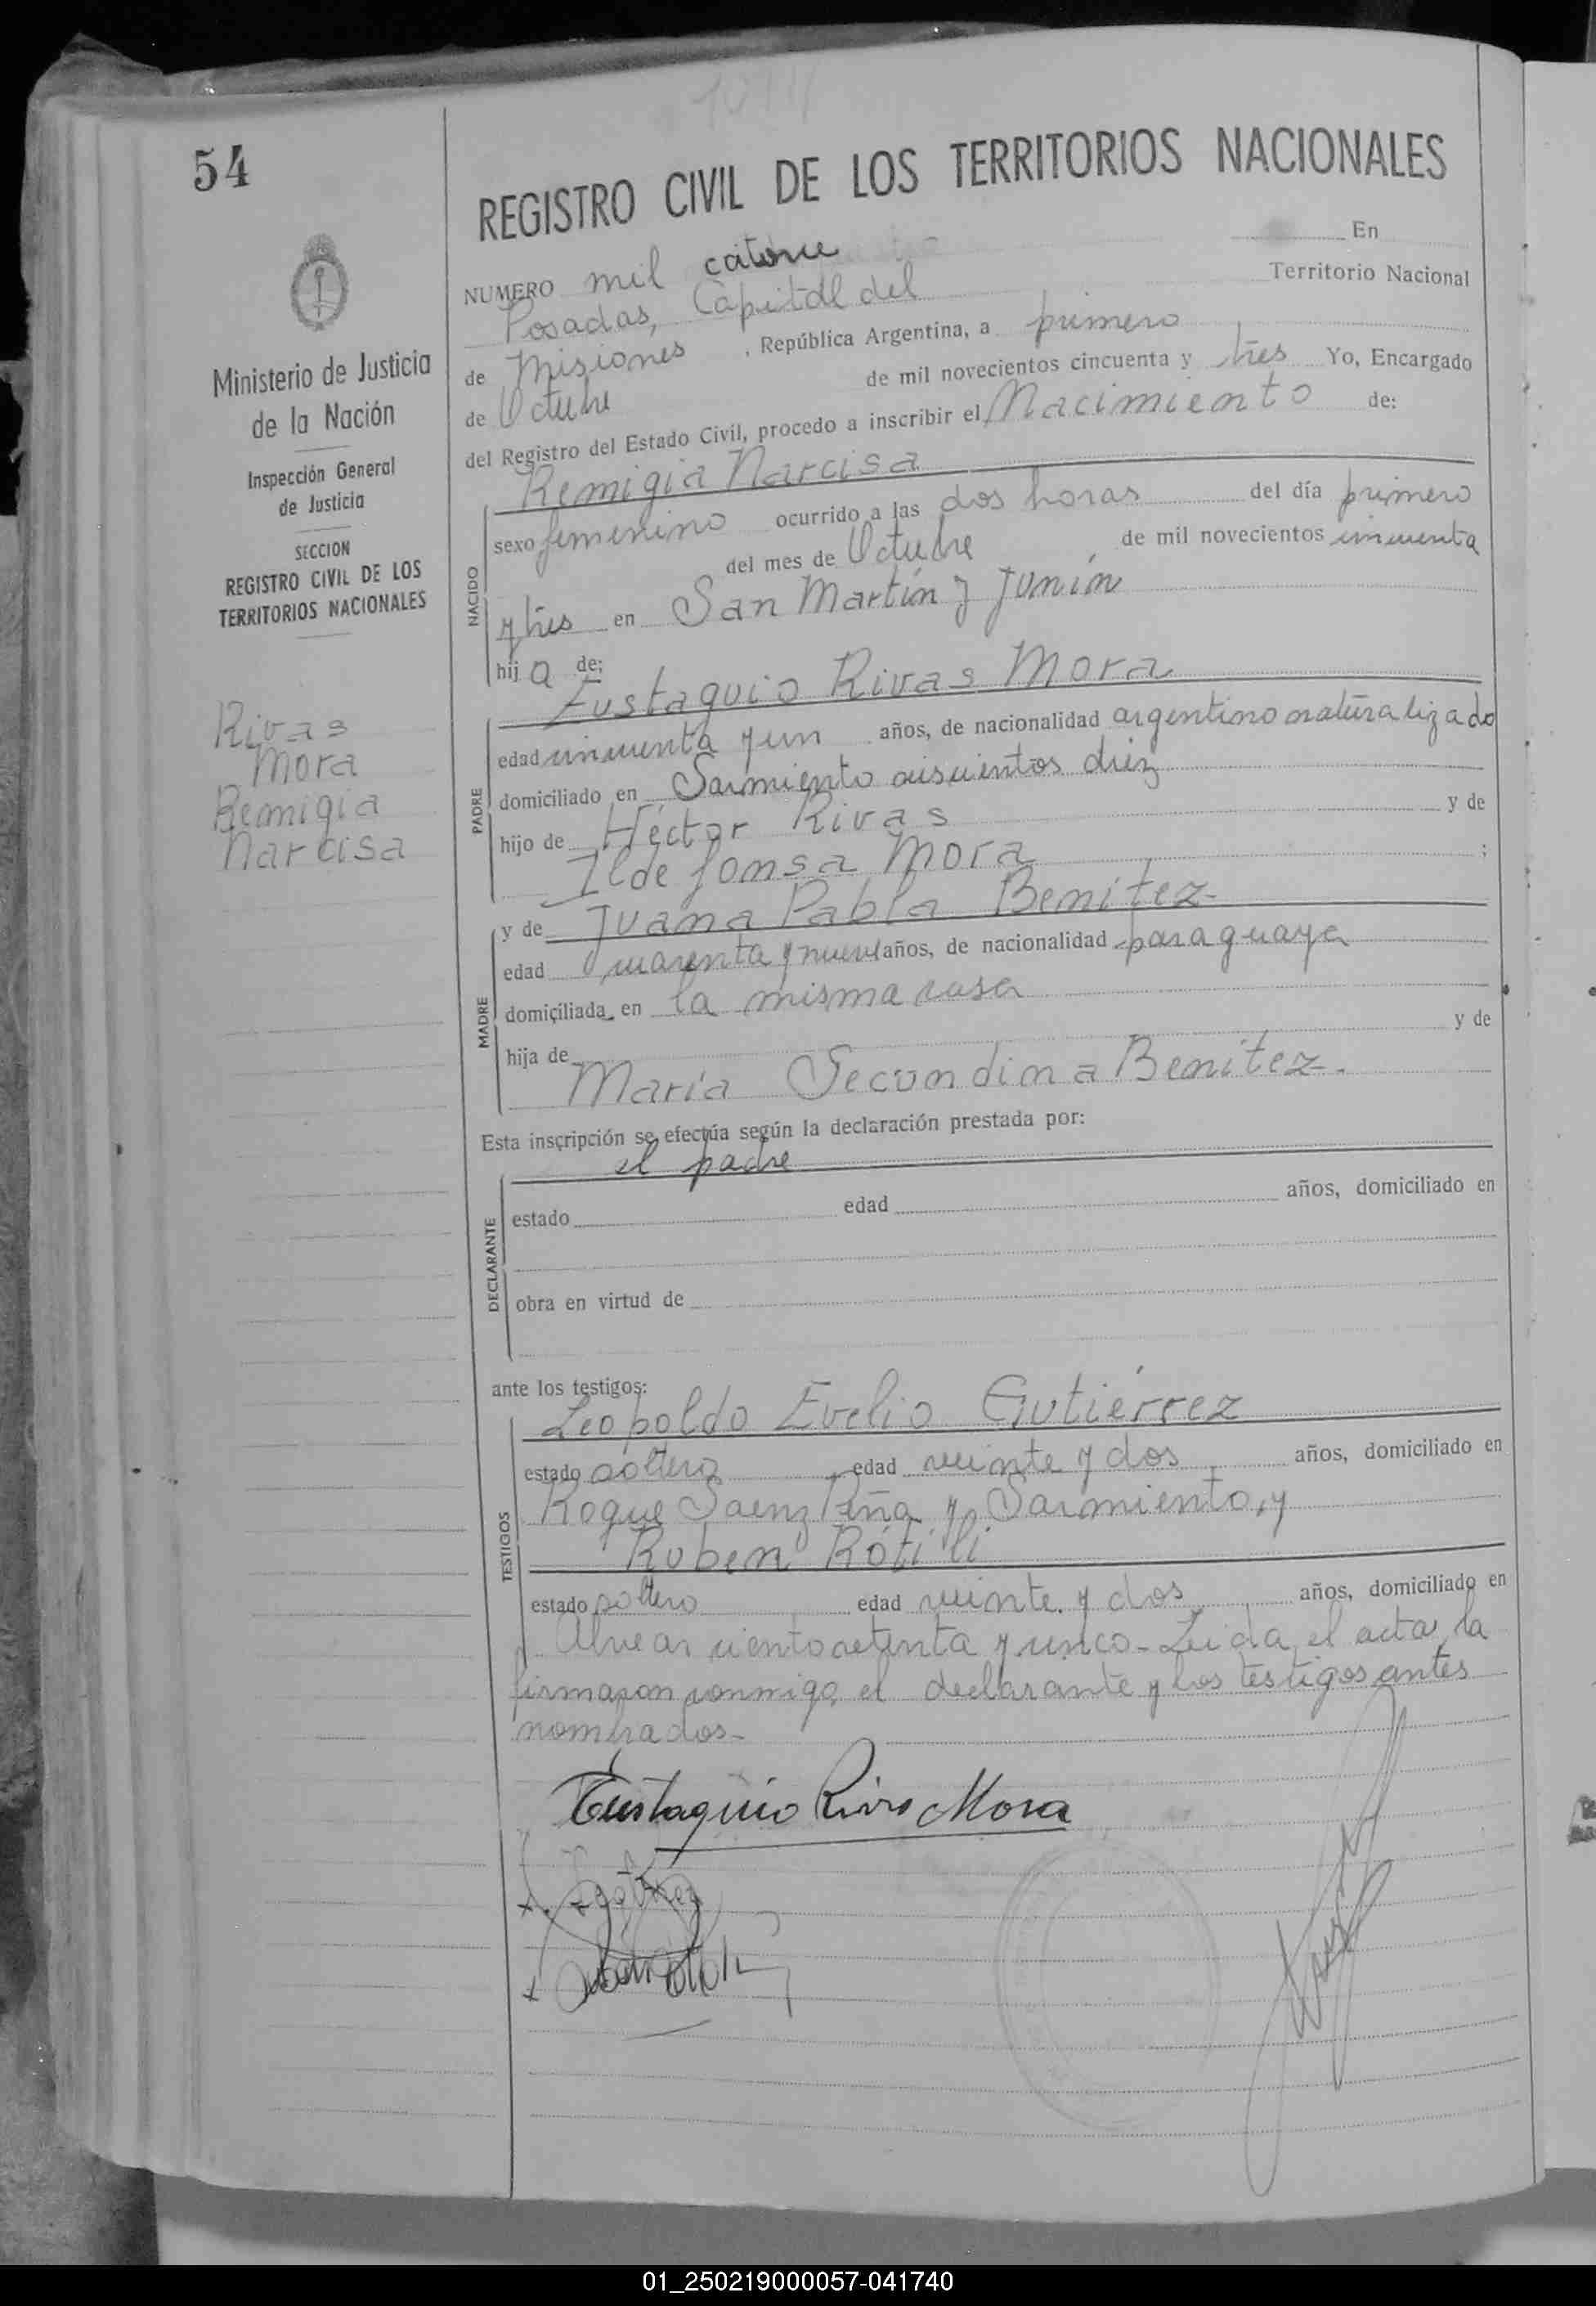 54
REGISTRO CIVIL DE LOS TERRITORIOS NACIONALES
Ministerio de Justicia
de la Nación
Inspección General
de Justicia
SECCION
REGISTRO CIVIL DE LOS
TERRITORIOS NACIONALES
Rivas
Mora
Remigia
Narcisa
NUMERO mil catorce En
Posadas, Capital del Territorio Nacional
de Misiones, República Argentina, a primero
de Octubre de mil novecientos cincuenta y tres Yo, Encargado
del Registro del Estado Civil, procedo a inscribir el Nacimiento de:
NACIDO
Remigia Narcisa
sexo femenino ocurrido a las dos horas del día primero
del mes de Octubre, de mil novecientos cincuenta
y tres en San Martín y Junín
hija de:
PADRE
Eustaquio Rivas Mora
edad cincuenta y un años, de nacionalidad argentino naturalizado
domiciliado en Sarmiento seiscientos diez
hijo de Héctor Rivas y de
Ildefonsa Mora ;
MADRE
y de Juana Pabla Benítez-
edad cuarenta y nueve años, de nacionalidad paraguaya
domiciliada en la misma casa
hija de y de
María Secundina Benítez-.
Esta inscripción se efectúa según la declaración prestada por:
el padre
DECLARANTE
estado edad años, domiciliado en
obra en virtud de
ante los testigos:
TESTIGOS
Leopoldo Evelio Gutiérrez
estado soltero edad veinte y dos años, domiciliado en
Roque Saenz Peña y Sarmiento, y
Ruben Rótili
estado soltero edad veinte y dos años, domiciliado en
Alvear ciento setenta y cinco- Leída el acta, la
firmaron conmigo el declarante y los testigos antes
nombrados-
Eustaquio Rivas Mora
01_250219000057-041740